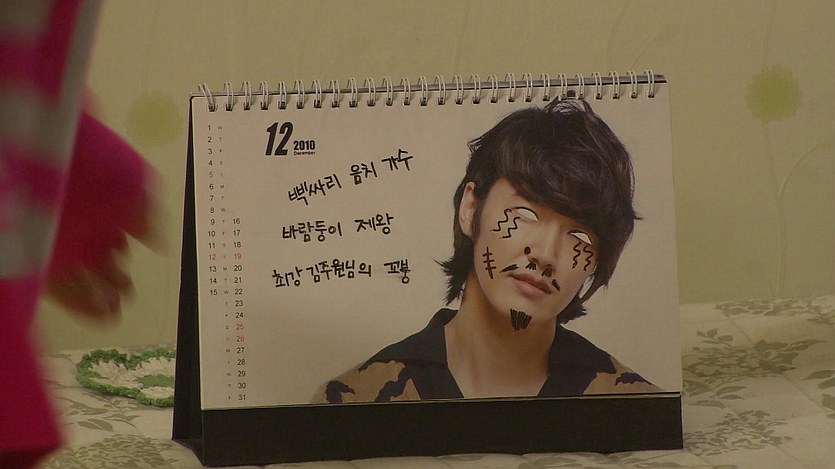 12 2010
December
삑싸리 음치 가수
바람둥이 제왕
최강 김주원님의 꼬붕
1 W
2 T
3 F
4 S
5 S
6 M
7 T
8 W
9 T 16
10 F 17
11 S 18
12 S 19
13 M 20
14 T 21
15 W 22
T 23
F 24
S 25
S 26
M 27
T 28
W 29
T 30
F 31